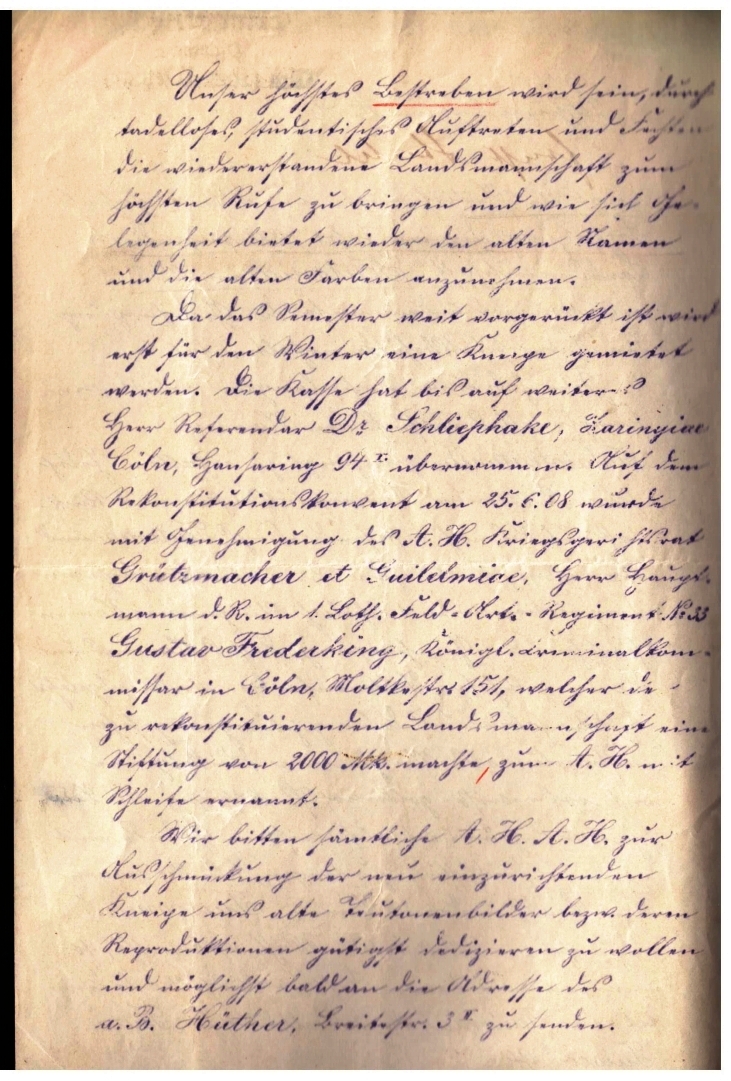 Unser höchstes Bestreben wird sein, durch
tadelloses, studentisches Auftreten und Fechten
die wiedererstandene Landsmannschaft zum
höchsten Rufe zu bringen und wie sich Ge-
legenheit bietet wieder den alten Namen
und die alten Farben anzunehmen.
Da das Semester weit vorgerückt ist wird
erst für den Winter eine Kneipe gemietet
werden. Die Kasse hat bis auf weiteres
Herr Referendar Dr Schliephake, Zaringiae
Cöln, Hansaring 94 I. übernommen. Auf dem
Rekonstitutionskonvent am 25.6.08 wurde
mit Genehmigung des A.H. Kriegsgerichtsrat
Grützmacher et Guilelmiae, Herr Haupt-
mann d.R. im 1. Loth. Feld-Art.-Regiment No 33
Gustav Frederking, Königl. Criminalkom-
missar in Cöln, Moltkestr. 151, welcher der
zu rekonstituierenden Landsmannschaft eine
Stiftung von 2000 Mk. machte, zum A.H. mit
Schleife ernannt.
Wir bitten sämtliche A.H. A.H. zur
Ausschmückung der neu einzurichtenden
Kneipe uns alte Teutonenbilder bezw. deren
Reproduktionen gütigst dedizieren zu wollen
und möglichst bald an die Adresse des
a.B. Hüther, Breitestr. 3 II zu senden.